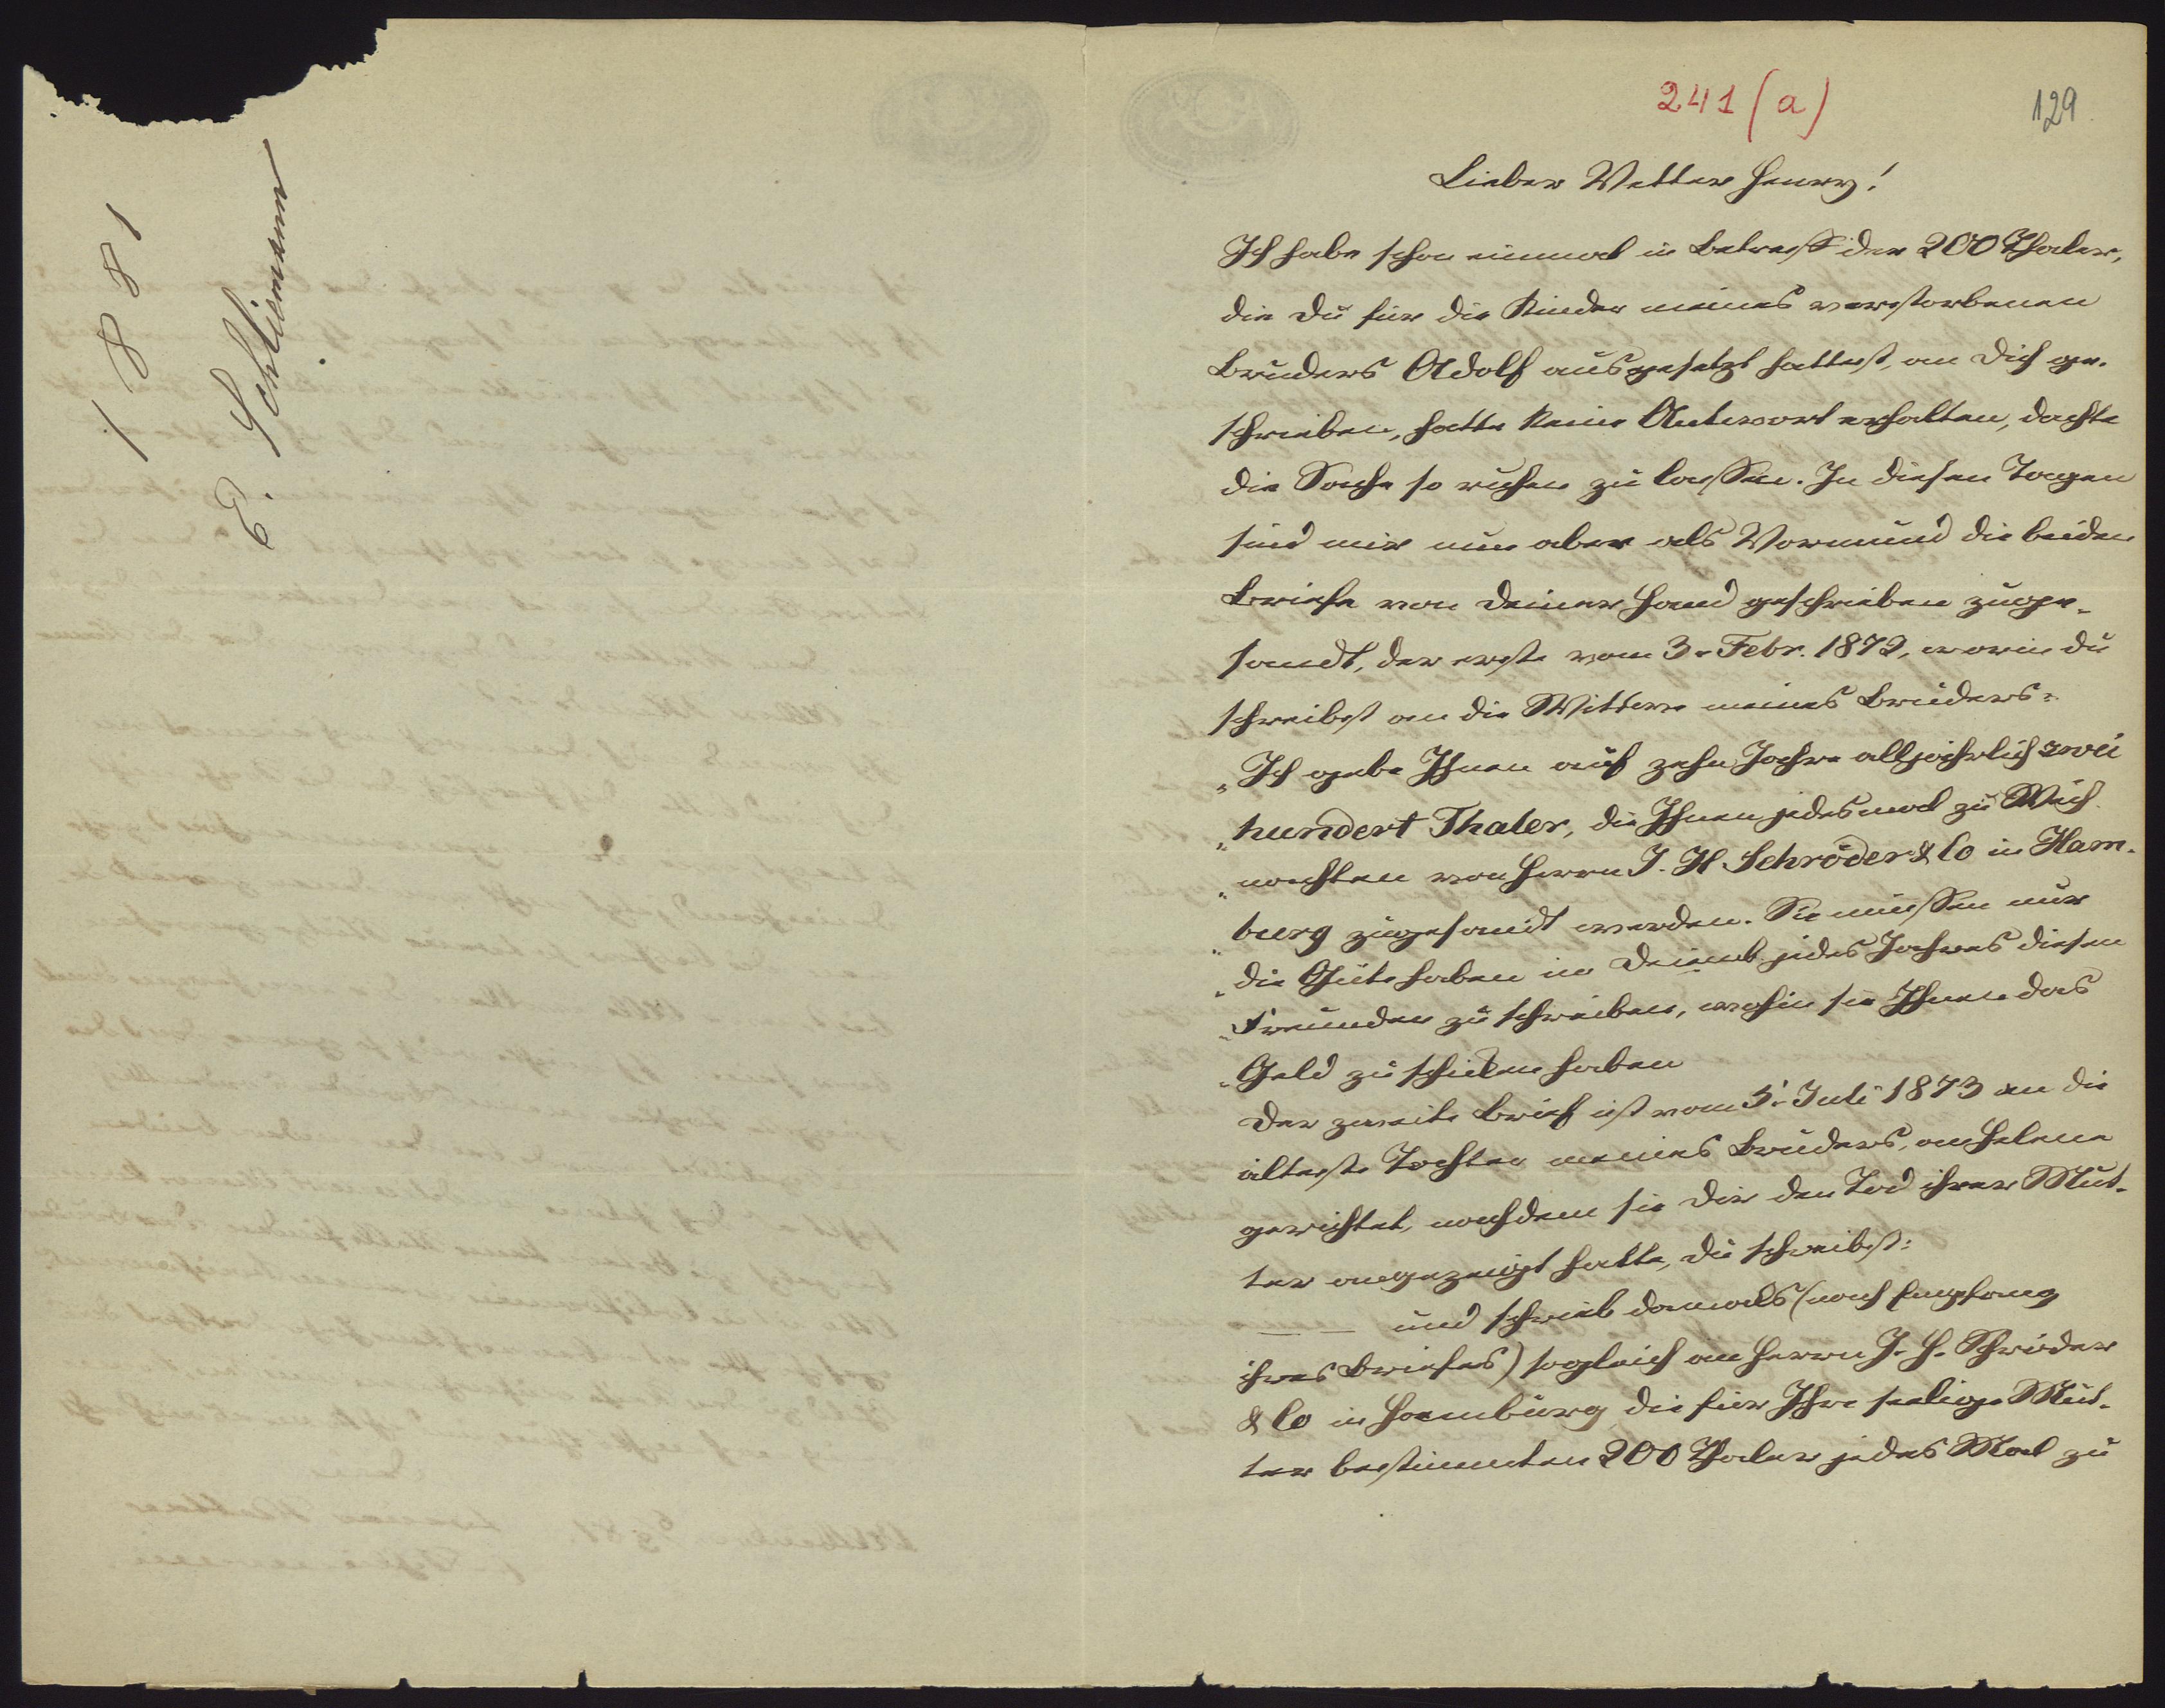 1881
E. Schliemann
241 (a)
129
Lieber Vetter Henry!
Ich habe schon einmal in Betreff der 200 Thaler,
die Du für die Kinder meines verstorbenen
Bruders Adolf ausgesetzt hattest, an Dich ge-
schrieben, hatte keine Antwort erhalten, dachte
die Sache so ruhen zu lassen. In diesen Tagen
sind mir nun aber als Vormund die beiden
Briefe von Deiner Hand geschrieben zuge-
sandt, der erste vom 3. Febr. 1872, worin du
schreibst an die Wittwe meines Bruders:
"Ich gebe Ihnen auf zehn Jahre alljährlich zwei
"hundert Thaler, die Ihnen jedesmal zu Weih
"nachten von Herrn J. H. Schröder & Co in Ham-
"burg zugesandt werden. Sie müssen nur
"die Güte haben im Decemb. jedes Jahres diesen
"Freunden zu schreiben, wohin sie Ihnen das
"Geld zu schicken haben
Der zweite Brief ist vom 5. Juli 1873 an die
älteste Tochter meines Bruders, an Helene
gerichtet, nachdem sie Dir den Tod ihrer Mut-
ter angezeigt hatte, Du schreibst:
— — und schrieb damals (nach Empfang
ihres Briefes) sogleich an Herrn J. H. Schröder
& Co in Hamburg die für Ihre seelige Mut-
ter bestimmten 200 Thaler jedes Mal zu